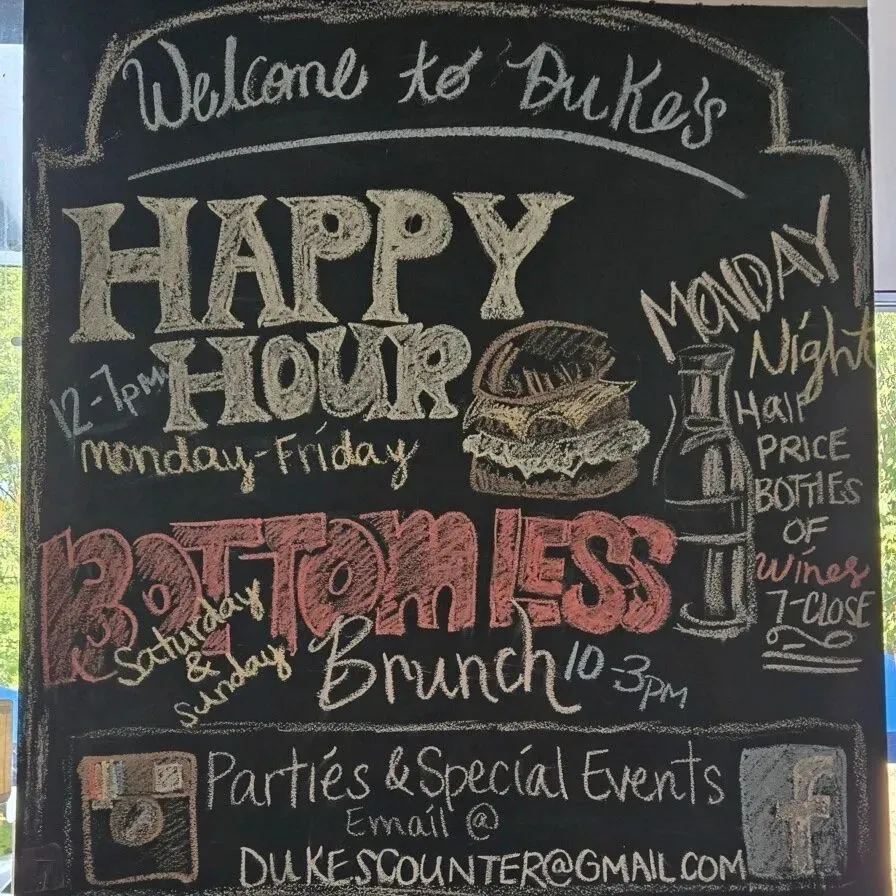 Welcome to Duke's
HAPPY
HOUR
12-7pm
monday-Friday
MONDAY
Night
HalF
PRICE
BOTTlES
OF
Wines
7-CLOSE
BOTTOMLESS
Saturday
&
sunday
Brunch 10-3pm
Parties & Special Events
Email @
DUKESCOUNTER@GMAIL.COM
f